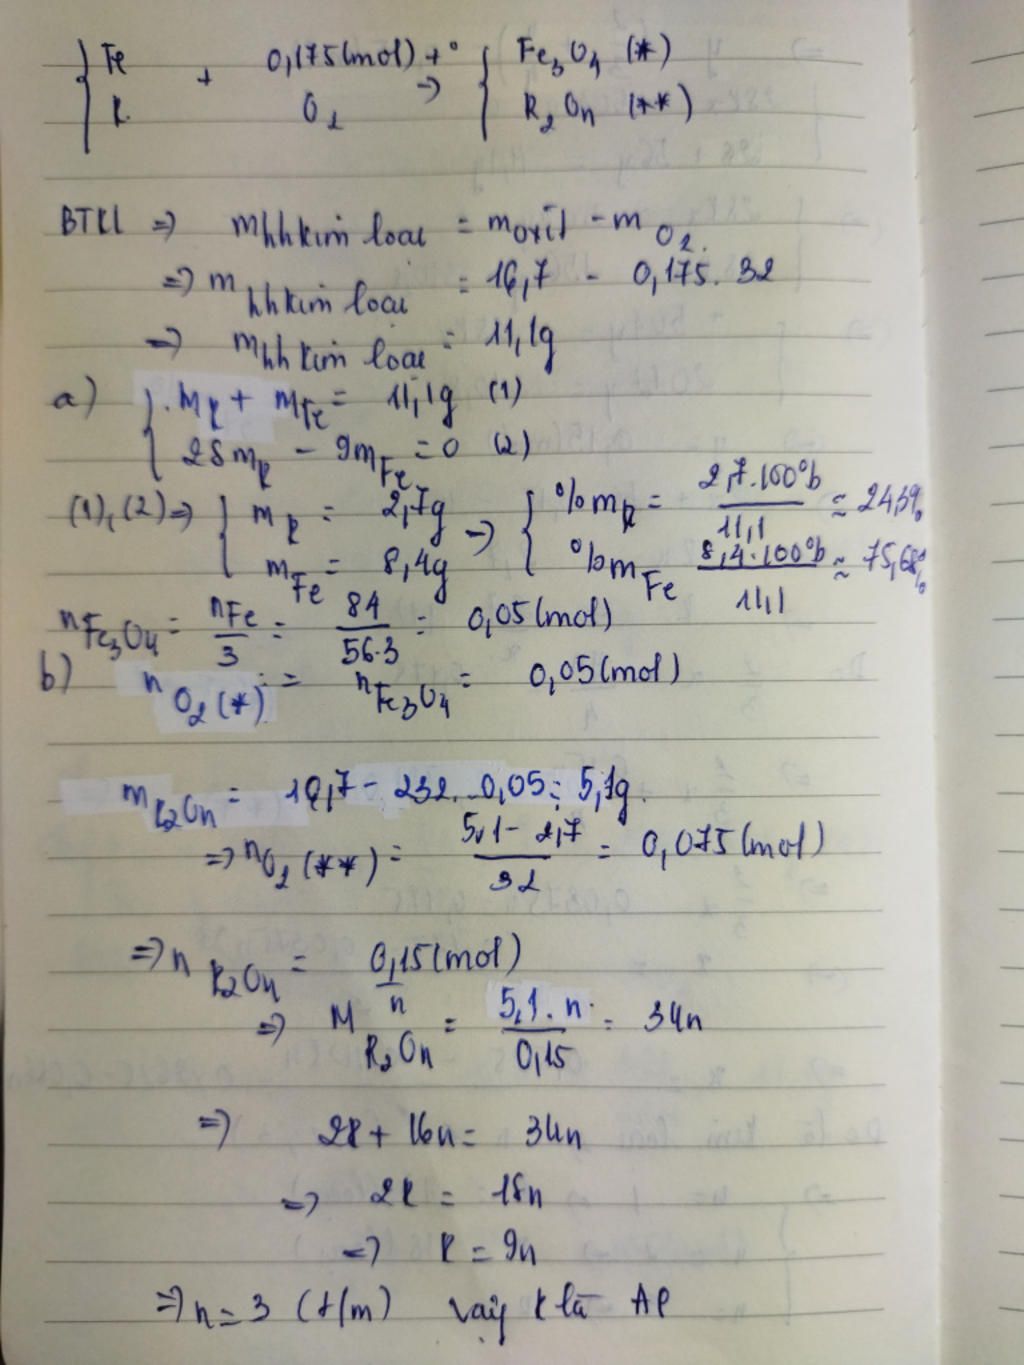 { Fe + 0,175(mol) t° => { Fe3O4 (*)
R O2 R2On (**)
BTKL => mhh kim loại = moxit - mO2
=> mhh kim loại = 16,7 - 0,175.32
=> mhh kim loại = 11,1g
a) { mR + mFe = 11,1g (1)
28mR - 9mFe = 0 (2)
(1),(2) => { mR = 2,7g => { %mR = 2,7.100% / 11,1 ≈ 24,3%
mFe = 8,4g %mFe 8,4.100% / 11,1 ≈ 75,68%
nFe3O4 = nFe / 3 = 84 / 56.3 = 0,05(mol)
b) nO2(*) = nFe3O4 = 0,05(mol)
mR2On = 16,7 - 232.0,05 = 5,1g.
=> nO2(**) = 5,1 - 2,7 / 32 = 0,075(mol)
=> nR2On = 0,15(mol) / n
=> MR2On = 5,1.n / 0,15 = 34n
=> 2R + 16n = 34n
=> 2R = 18n
=> R = 9n
=> n = 3 (t/m) vậy R là Al